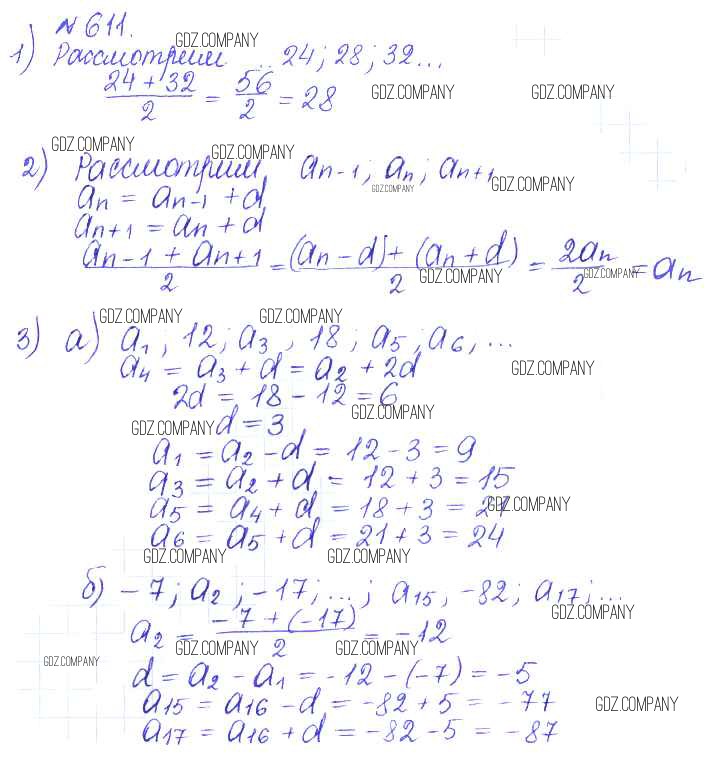 № 611.
1) Рассмотрим 24; 28; 32...
GDZ.COMPANY
(24 + 32)/2 = 56/2 = 28 GDZ.COMPANY GDZ.COMPANY
GDZ.COMPANY GDZ.COMPANY
2) Рассмотрим an-1; an; an+1
GDZ.COMPANY GDZ.COMPANY
an = an-1 + d
an+1 = an + d
(an-1 + an+1)/2 = ((an - d) + (an + d))/2 = 2an/2 = an
GDZ.COMPANY GDZ.COMPANY
GDZ.COMPANY GDZ.COMPANY
3) а) a1, 12; a3, 18; a5; a6, ...
a4 = a3 + d = a2 + 2d GDZ.COMPANY
2d = 18 - 12 = 6
GDZ.COMPANY
GDZ.COMPANY d = 3
a1 = a2 - d = 12 - 3 = 9
a3 = a2 + d = 12 + 3 = 15
a5 = a4 + d = 18 + 3 = 21 GDZ.COMPANY
a6 = a5 + d = 21 + 3 = 24
GDZ.COMPANY GDZ.COMPANY
б) -7; a2; -17; ...; a15, -82; a17; ...
GDZ.COMPANY
a2 = (-7 + (-17))/2 = -12
GDZ.COMPANY GDZ.COMPANY
GDZ.COMPANY
d = a2 - a1 = -12 - (-7) = -5
a15 = a16 - d = -82 + 5 = -77 GDZ.COMPANY
a17 = a16 + d = -82 - 5 = -87